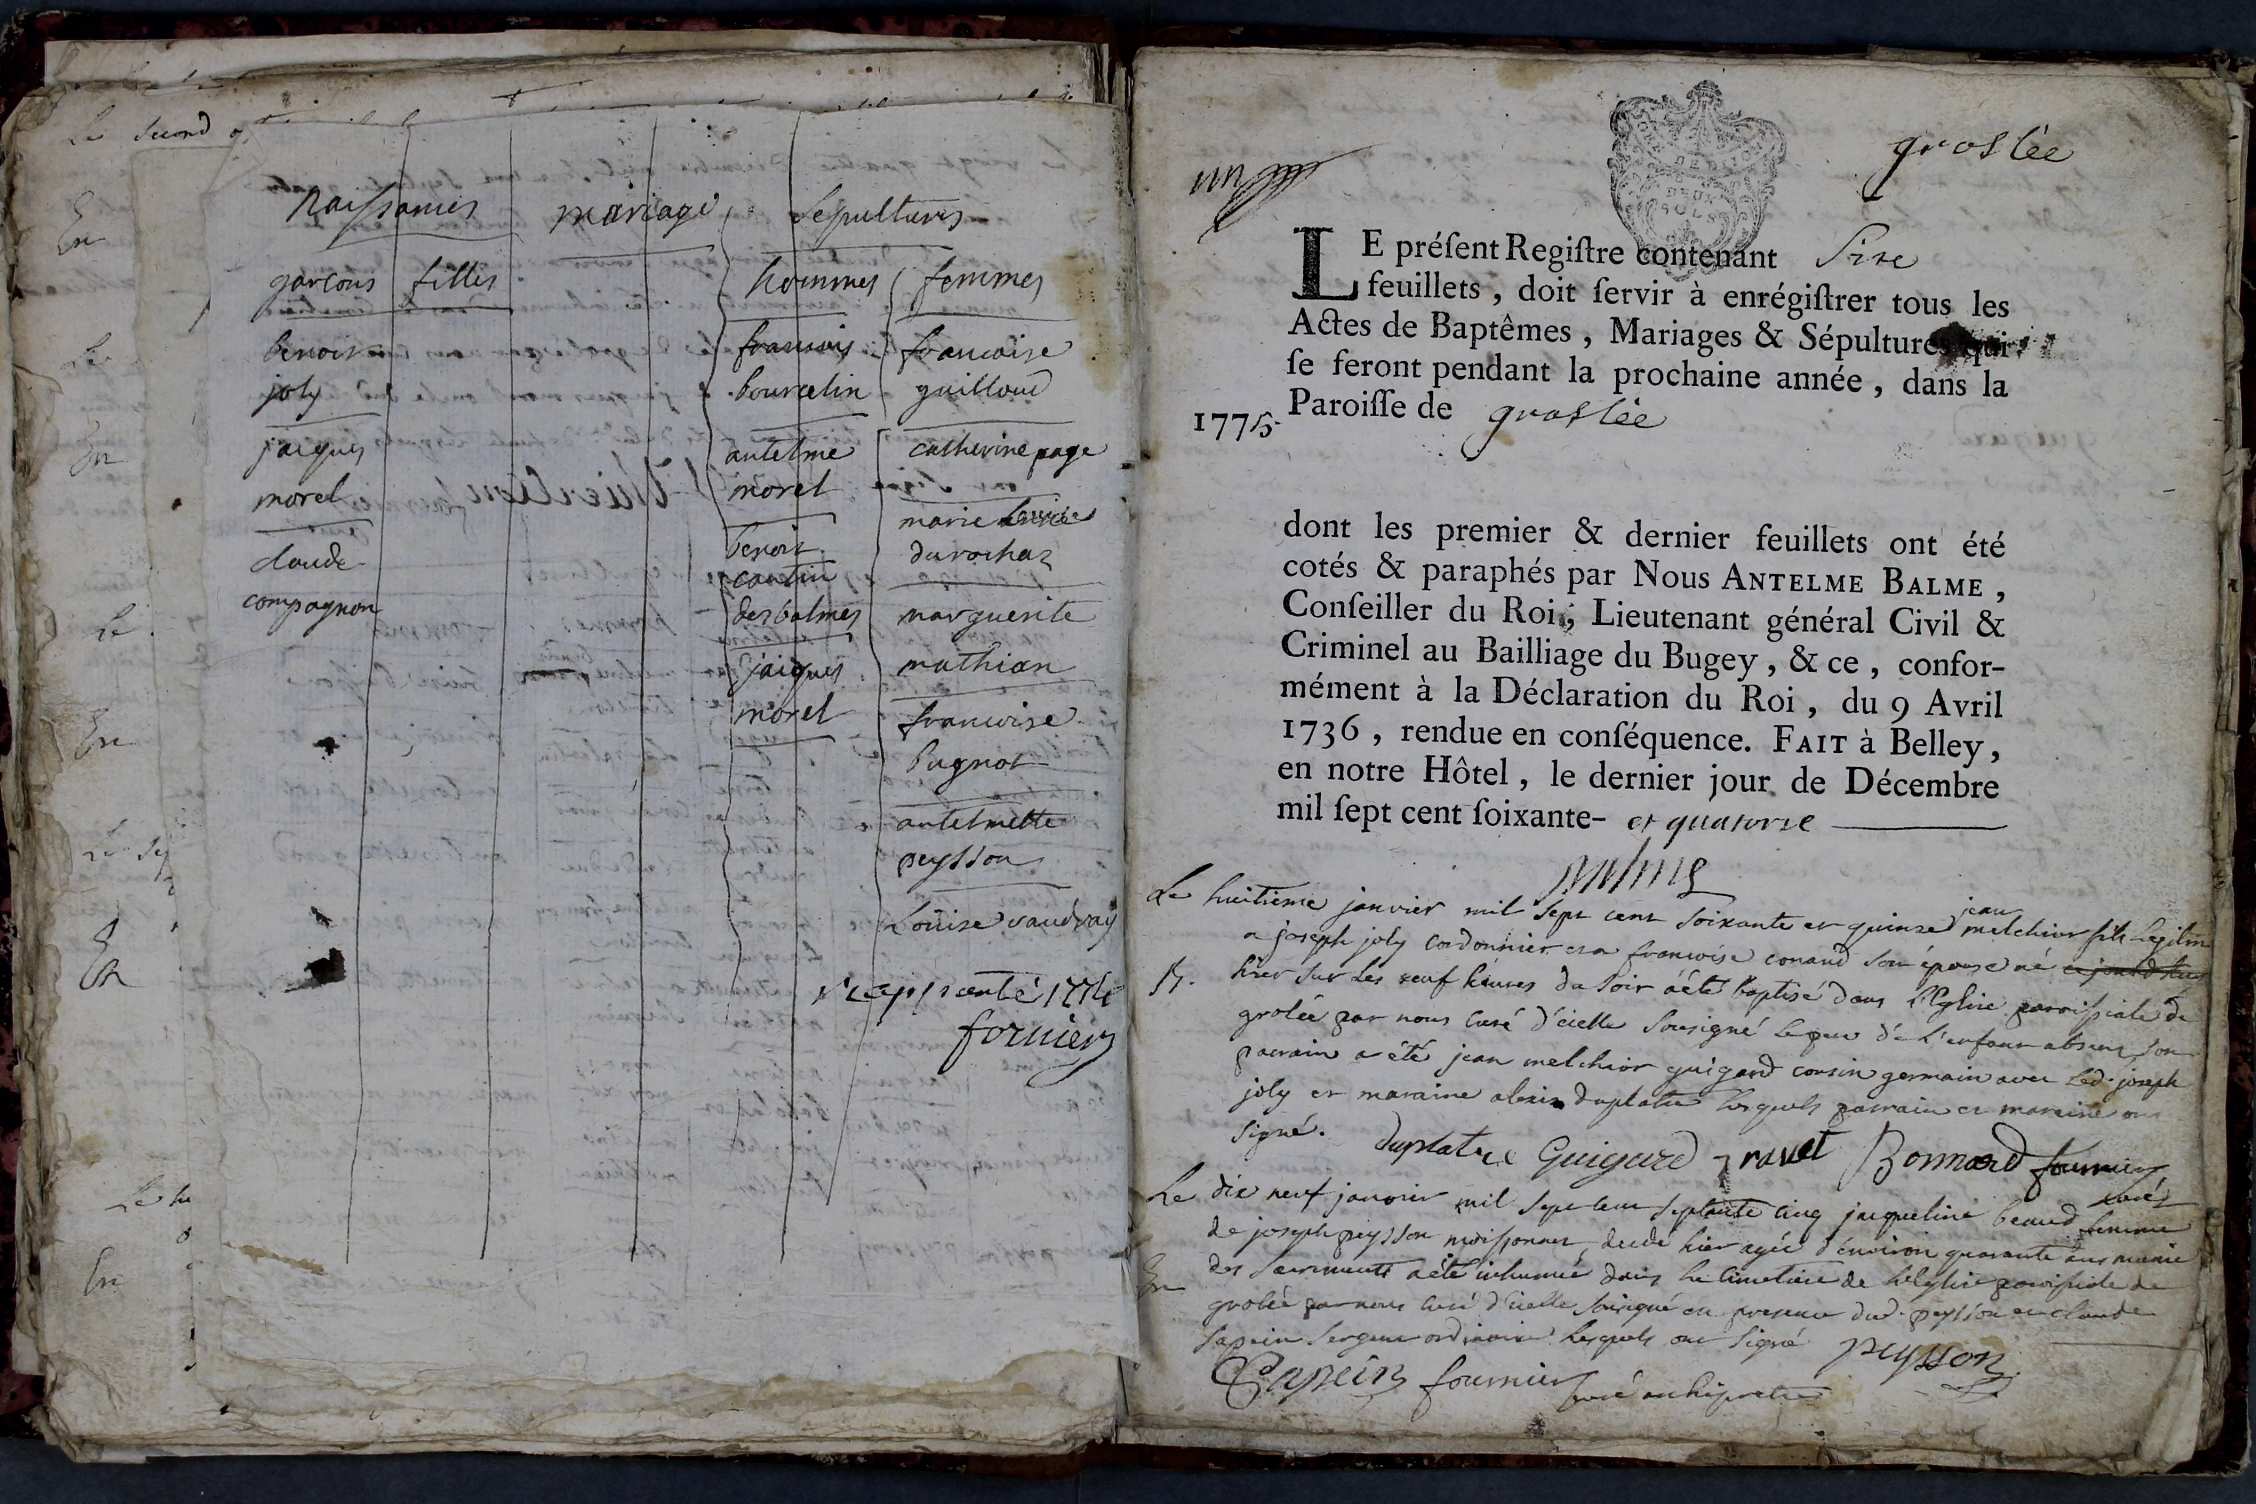 Le second
En
Le
En
Le
En
Le
En
Le
En
naissances mariage sepultures
garcons filles hommes femmes
benoit
joly
jaques
morel
claude
compagnon
francois
bourcelin
antelme
morel
benoit
cantin
desbalmes
jaiques
morel
francoise
guilloud
catherine page
marie
durochaz
marguerite
mathian
francoise
bugnot
antelmette
peysson
Louise vaudray
1774
fornier
un
grosléé
LE préſent Regiſtre contenant Sire
feuillets, doit ſervir à enrégiſtrer tous les
Actes de Baptêmes, Mariages & Sépultures qui
ſe feront pendant la prochaine année, dans la
1775. Paroiſſe de grosléé
dont les premier & dernier feuillets ont été
cotés & paraphés par Nous ANTELME BALME,
Conſeiller du Roi, Lieutenant général Civil &
Criminel au Bailliage du Bugey, & ce, confor-
mément à la Déclaration du Roi, du 9 Avril
1736, rendue en conſéquence. FAIT à Belley,
en notre Hôtel, le dernier jour de Décembre
mil ſept cent ſoixante- et quatorze
Balme
Le huitieme janvier mil sept cent soixante et quinze jean melchior fils Legitim
a joseph joly cordonnier et a francoise conand son épouse né ce jourd'huy
B. hier sur les neuf heures du soir a été baptisé dans l'Eglise paroissiale de
grolée par nous curé d'icelle sousigné le pere de l'enfant absent son
parrain a été jean melchior guigard cousin germain avec led. joseph
joly et maraine alexis duplatre lesquels parrain et maraine ont
signé. duplatre Guigard ravet Bonnard fournier
curé
Le dix neuf janvier mil sept cent septante cinq jacqueline beaud femme
de joseph peysson moissonner, decede hier agée d'environ quarante ans munie
des sacrements a été inhumée dans le cimetiere de l'Eglise paroissiale de
En grolée par nous curé d'icelle sousigné en presence dud. peysson et claude
sapein sergent ordinaire lesquels ont signé peysson
Sapein fournier curé archipretre